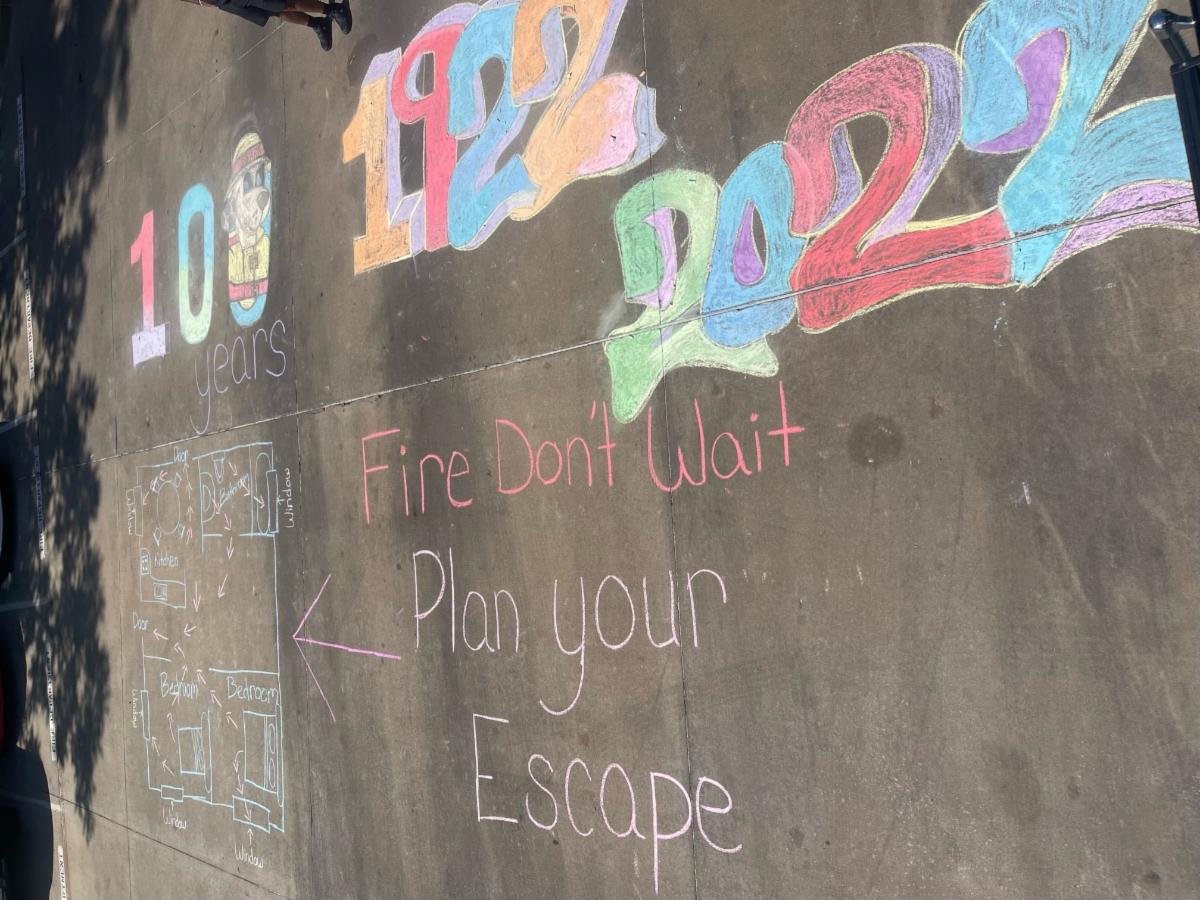 100
years
1922
2022
Fire Don't Wait
Plan your
Escape
Door
Window
Bathroom
Window
Kitchen
Door
Bedroom
Bedroom
Window
Window
Window